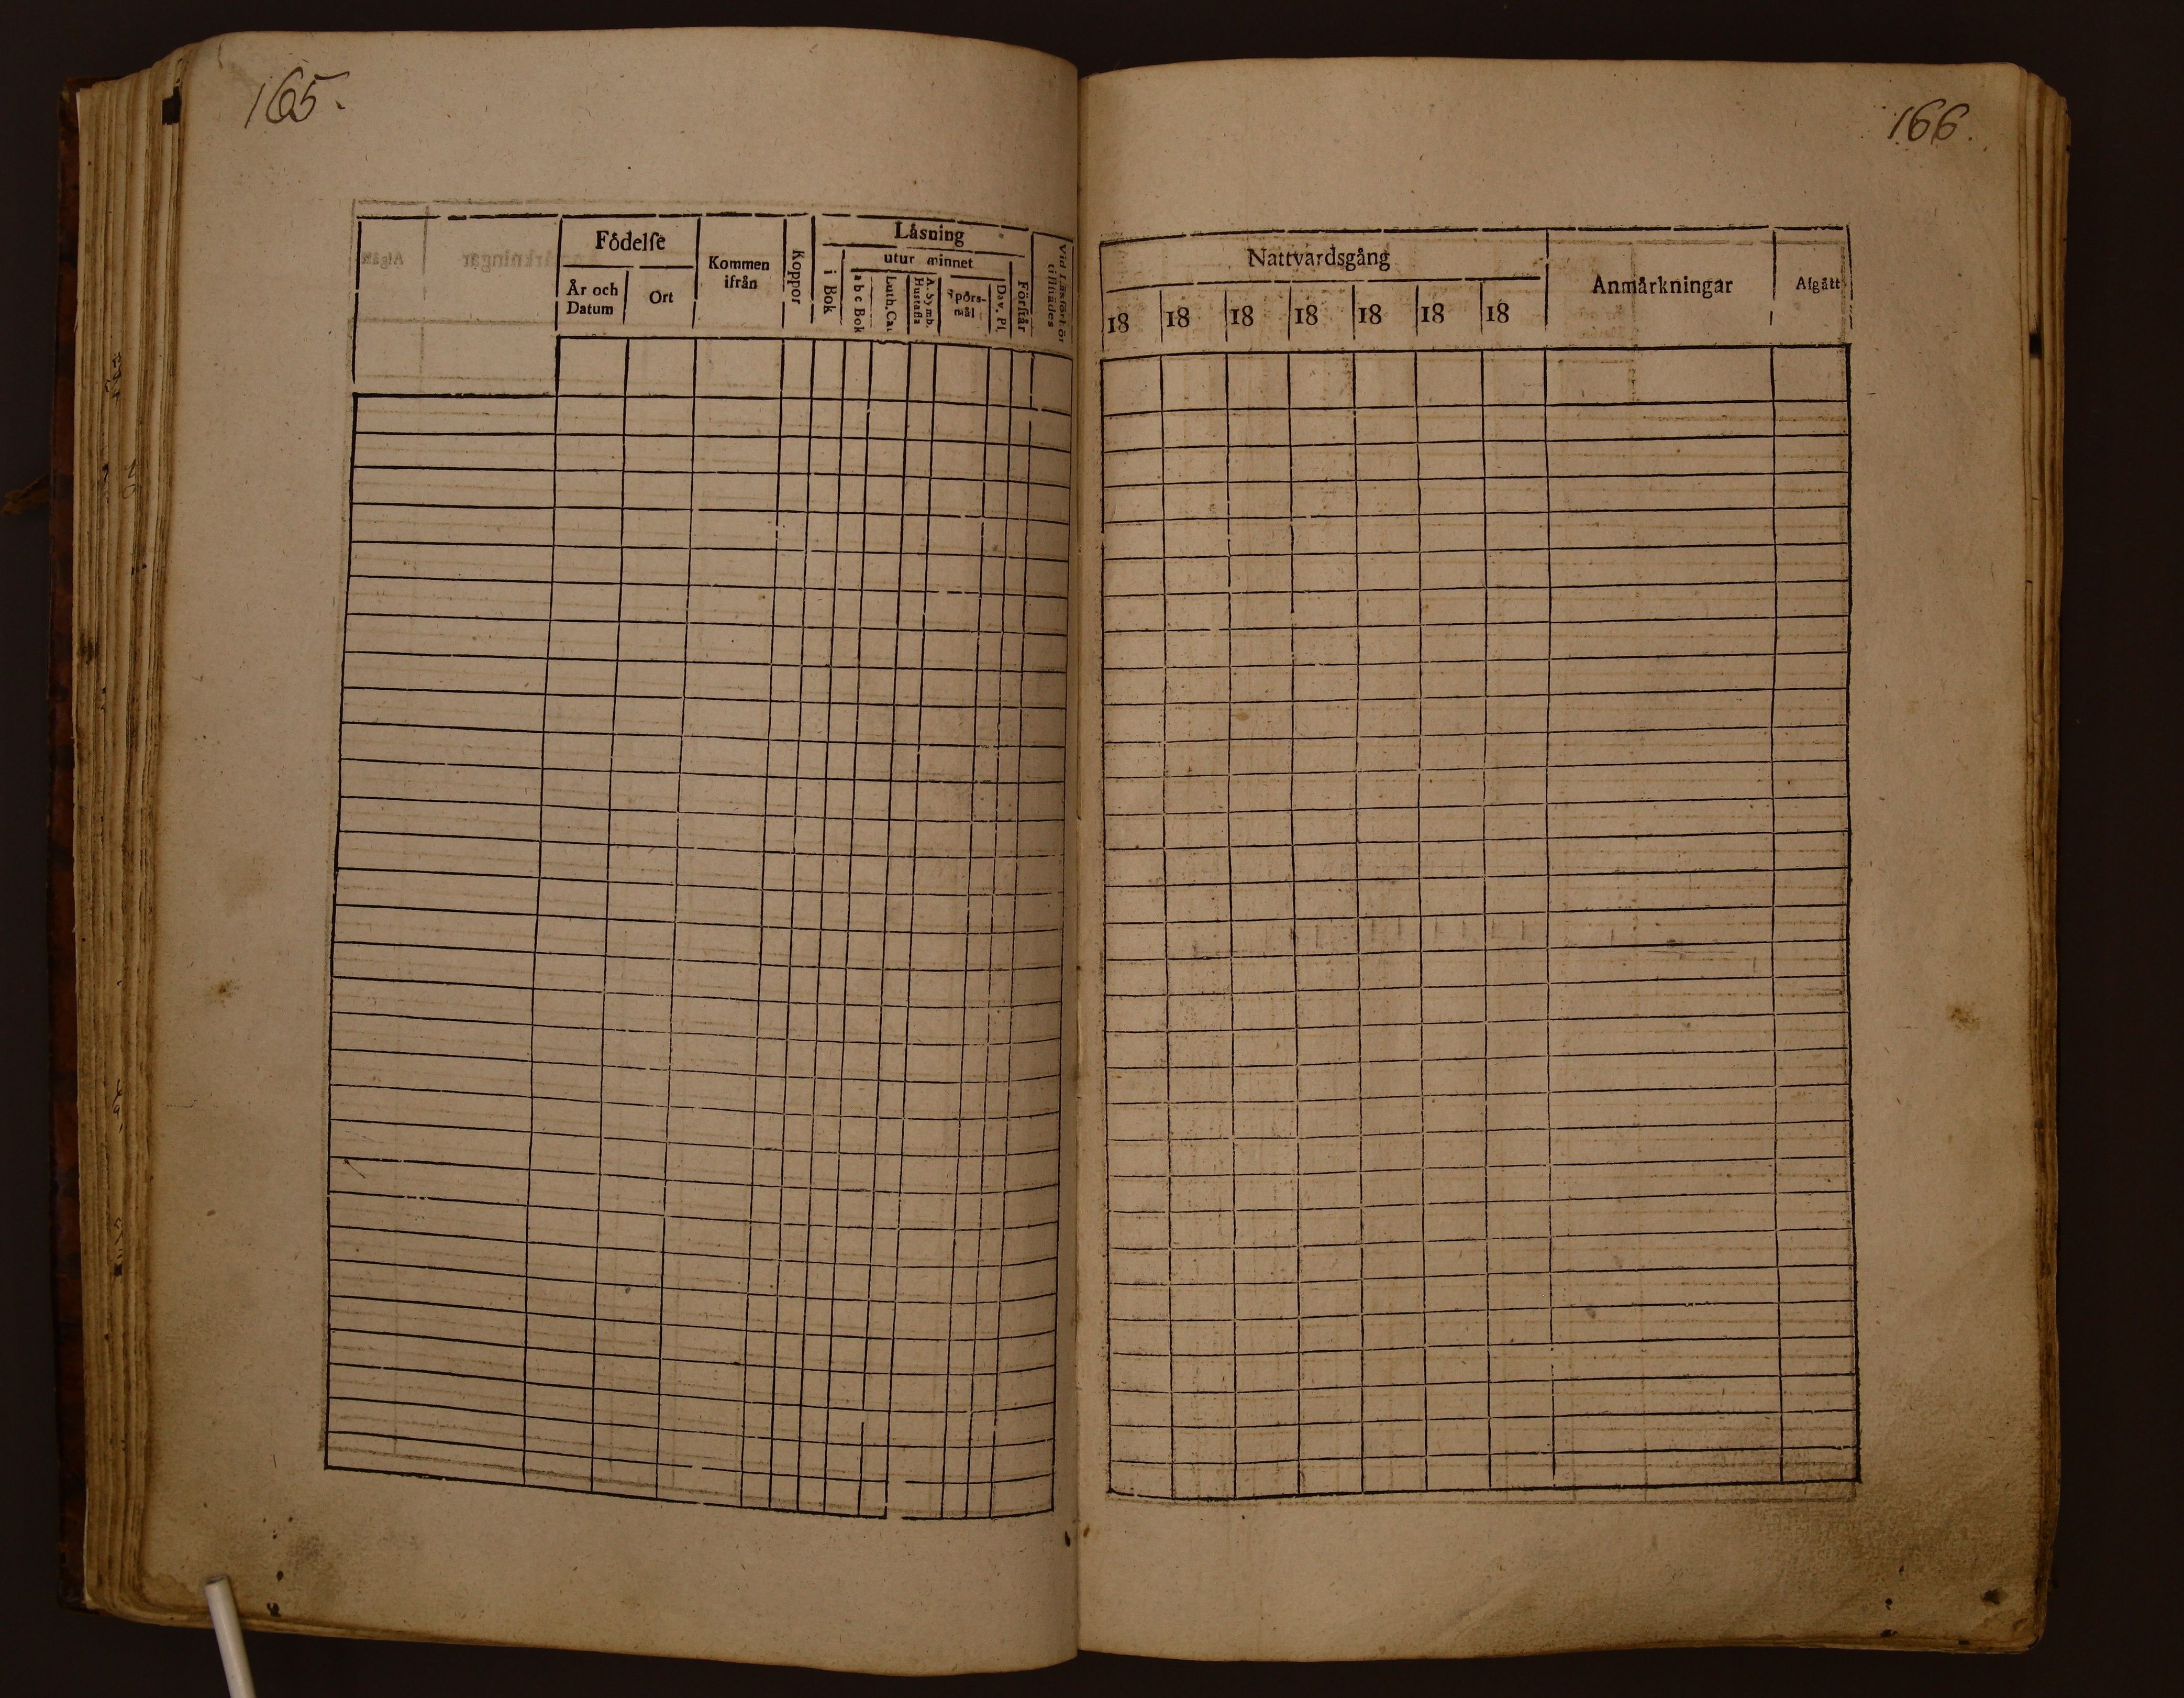 165.
Födelſe
År och
Datum
Ort
Kommen
ifrån
Koppor
Läsning
i Bok
utur minnet
a b c Bok
Luth. Cat.
A. Symb.
Hustafla
Spörs-
mål
Dav. Pſ.
Förſtår
Vid Läsförhör
tillſtädes
166.
Nattvardsgång
18 18 18 18 18 18 18
Anmärkningar
Afgått